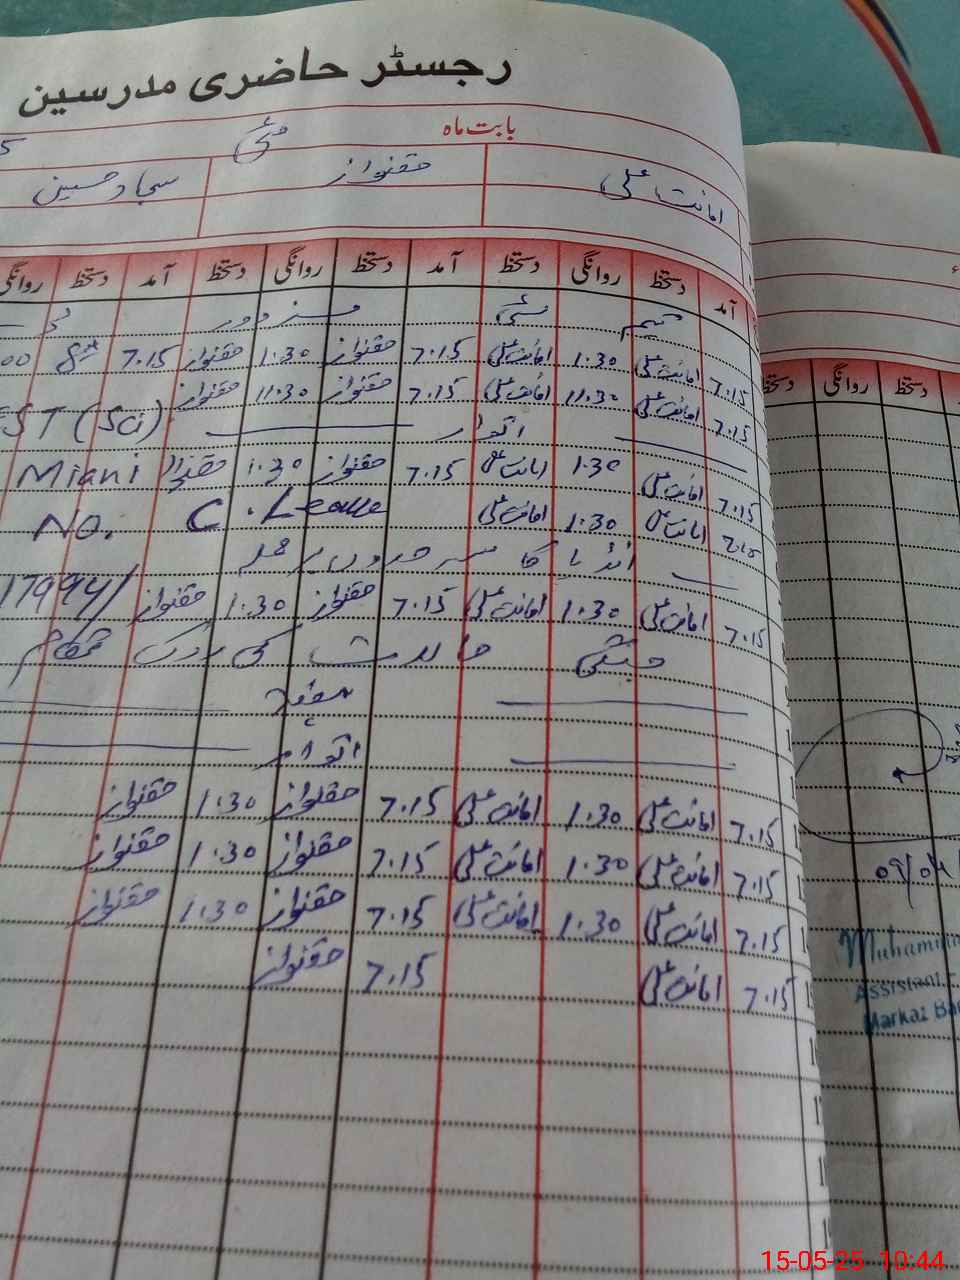 رجسٹر حاضری مدرسین
بابت ماہ مئی
امانت علی حقنواز سجاد حسین
آمد دستخط روانگی دستخط آمد دستخط روانگی دستخط آمد دستخط روانگی
یکم مئی
7.15 امانت علی 1:30 امانت علی 7.15 حقنواز 1:30 حقنواز 7.15
7.15 امانت علی 11:30 امانت علی 7.15 حقنواز 11:30 حقنواز
اتوار
7.15 امانت علی 1.30 امانت علی 7.15 حقنواز 1:30 حقنواز
7.15 امانت علی 1:30 امانت علی C. Leave
EST (Sci)
Miani
No.
انڈیا کا سرحدوں پر حملہ
7.15 امانت علی 1:30 امانت علی 7.15 حقنواز 1:30 حقنواز
17994/
جنگی حالات کی
ہفتہ
اتوار
7.15 امانت علی 1:30 امانت علی 7.15 حقنواز 1:30 حقنواز
7.15 امانت علی 1:30 امانت علی 7.15 حقنواز 1:30 حقنواز
7.15 امانت علی 1:30 امانت علی 7.15 حقنواز 1:30 حقنواز
7.15 امانت علی 7.15 حقنواز
دستخط روانگی دستخط
Assistant
Markaz
15-05-25 10:44